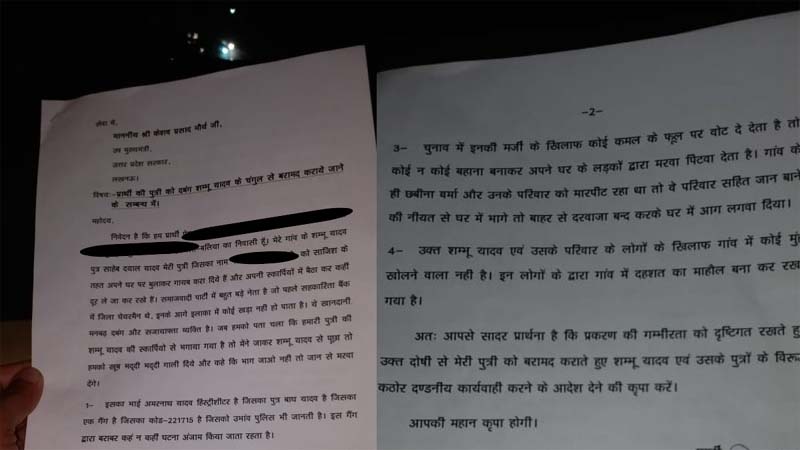 सेवा में,
माननीय श्री केशव प्रसाद मौर्य जी,
उप मुख्यमंत्री,
उत्तर प्रदेश सरकार,
लखनऊ।
विषयः-प्रार्थी की पुत्री को दबंग शम्भू यादव के चंगुल से बरामद कराये जाने
के सम्बन्ध में।
महोदय,
निवेदन है कि हम प्रार्थी
बलिया का निवासी हूँ। मेरे गांव के शम्भू यादव
पुत्र साहेब दयाल यादव मेरी पुत्री जिसका नाम को साजिश के
तहत अपने घर पर बुलाकर गायब करा दिये हैं और अपनी स्कार्पियों में बैठा कर कहीं
दूर ले जा कर रखे हैं। समाजवादी पार्टी में बहुत बड़े नेता है जो पहले सहकारिता बैंक
में जिला चेयरमैन थे, इनके आगे इलाका में कोई खड़ा नहीं हो पाता है। ये खानदानी
मनबढ़ दबंग और सजायाफ्ता व्यक्ति है। जब हमको पता चला कि हमारी पुत्री की
शम्भू यादव की स्कार्पियों से भगाया गया है तो मैने जाकर शम्भू यादव से पूछा तो
हमको खूब मद्दी मद्दी गाली दिये और कहे कि भाग जाओ नही तो जान से मरवा
देंगे।
1- इसका भाई अमरनाथ यादव हिस्ट्रीशीटर है जिसका पुत्र बाघ यादव है जिसका
एक गैंग है जिसका कोड-221715 है जिसको उभांव पुलिस भी जानती है। इस गैंग
द्वारा बराबर कहं न कहीं घटना अंजाम किया जाता रहता है।
-2-
3- चुनाव में इनकी मर्जी के खिलाफ कोई कमल के फूल पर वोट दे देता है तो
कोई न कोई बहाना बनाकर अपने घर के लड़कों द्वारा मरवा पिटवा देता है। गांव के
ही छबीना वर्मा और उनके परिवार को मारपीट रहा था तो वे परिवार सहित जान बाने
की नीयत से घर में भागे तो बाहर से दरवाजा बन्द करके घर में आग लगवा दिया।
4- उक्त शम्भू यादव एवं उसके परिवार के लोगों के खिलाफ गांव में कोई मुं
खोलने वाला नही है। इन लोगों के द्वारा गांव में दहशत का माहौल बना कर रख
गया है।
अतः आपसे सादर प्रार्थना है कि प्रकरण की गम्भीरता को दृष्टिगत रखते हु
उक्त दोषी से मेरी पुत्री को बरामद कराते हुए शम्भू यादव एवं उसके पुत्रों के विरू
कठोर दण्डनीय कार्यवाही करने के आदेश देने की कृपा करें।
आपकी महान कृपा होगी।